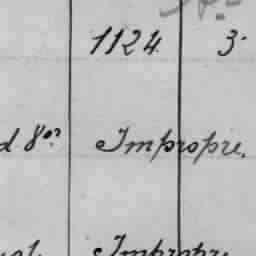 1124 3.
d 8° Impropre.
Impropre